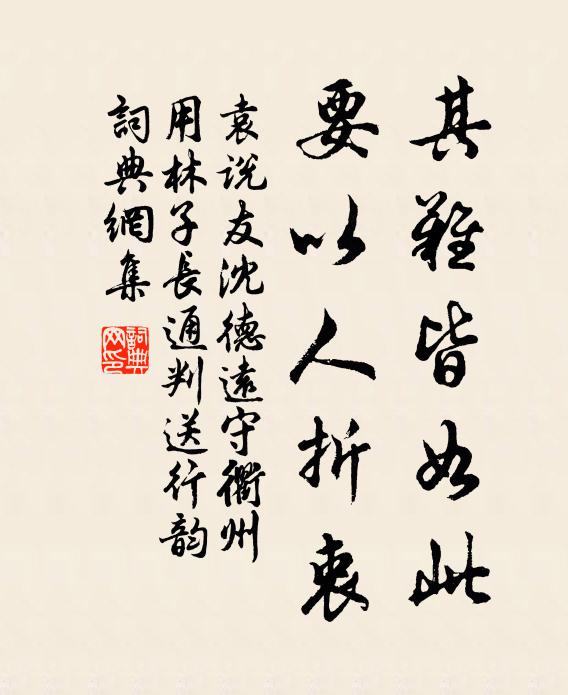 其難皆如此
要以人折衷
袁说友沈德遠守衢州
用林子長通判送行韵
詞典網集
詞典网印